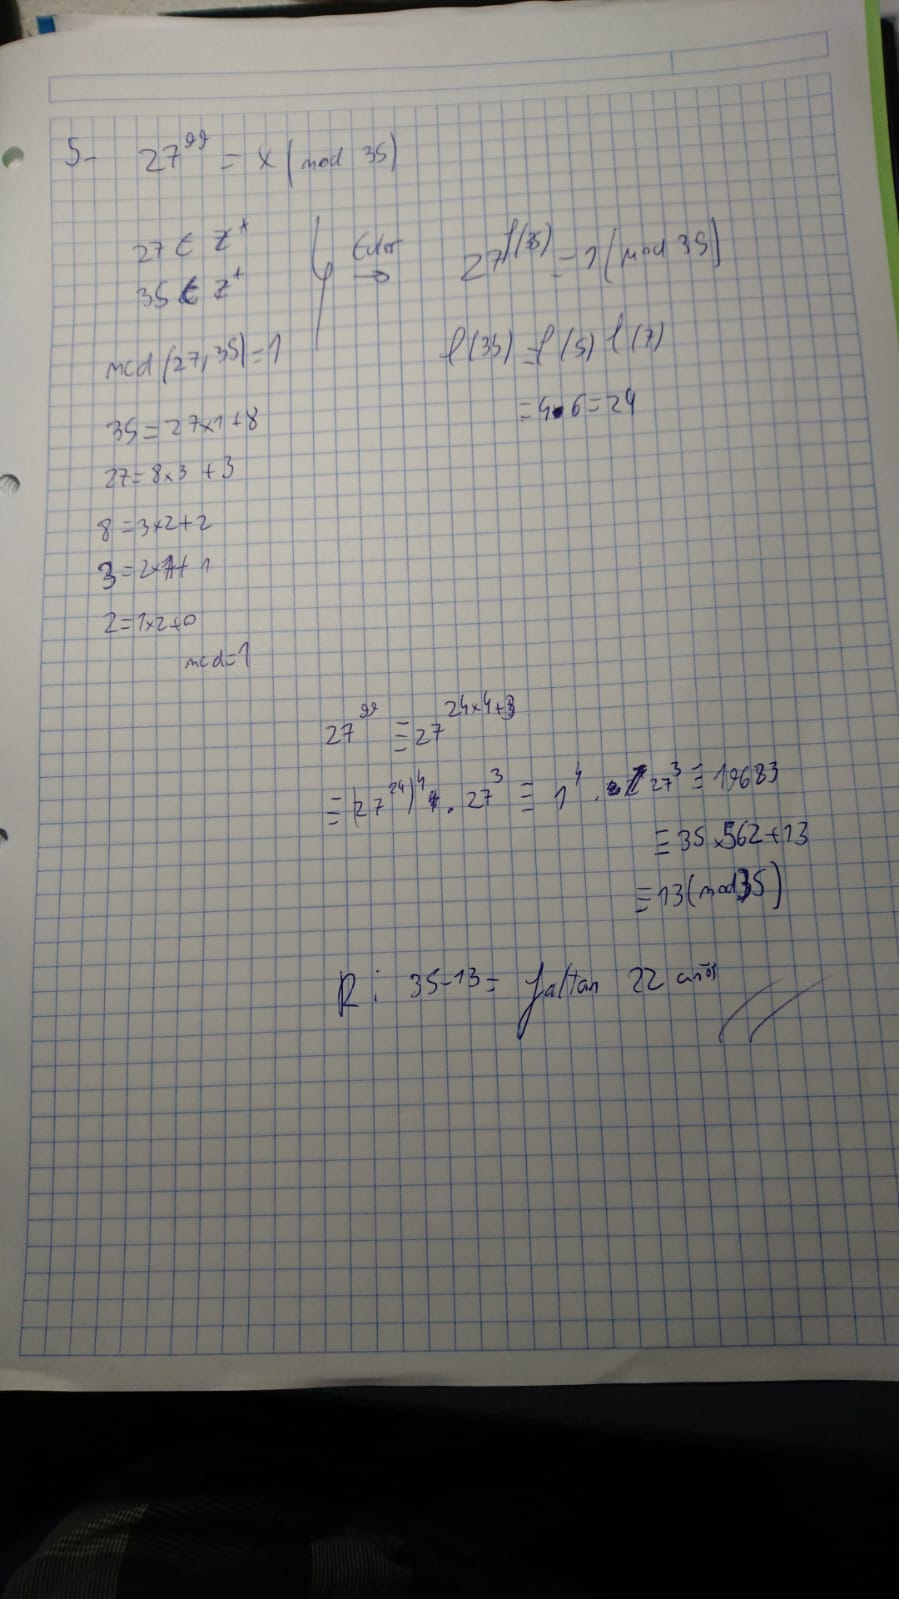 5- 27^99 = x (mod 35)
27 ∈ Z^+
35 ∈ Z^+
mcd (27, 35) = 1
Euler →
27^φ(35) = 1 (mod 35)
φ(35) = φ(5) φ(7)
= 4·6 = 24
35 = 27x1+8
27 = 8x3 + 3
8 = 3x2+2
3 = 2x1+ 1
2 = 1x2+0
mcd=1
27^99 ≡ 27^24x4+3
≡ (27^24)^4 . 27^3 ≡ 1^4 . 27^3 ≡ 19683
≡ 35 x562+13
≡ 13 (mod 35)
R: 35-13 = faltan 22 años